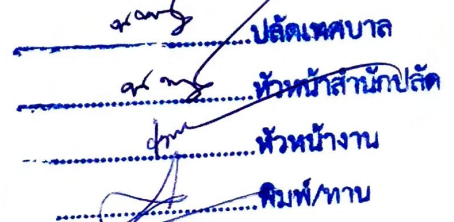 ปลัดเทศบาล
หัวหน้าสำนักปลัด
หัวหน้างาน
พิมพ์/ทาน